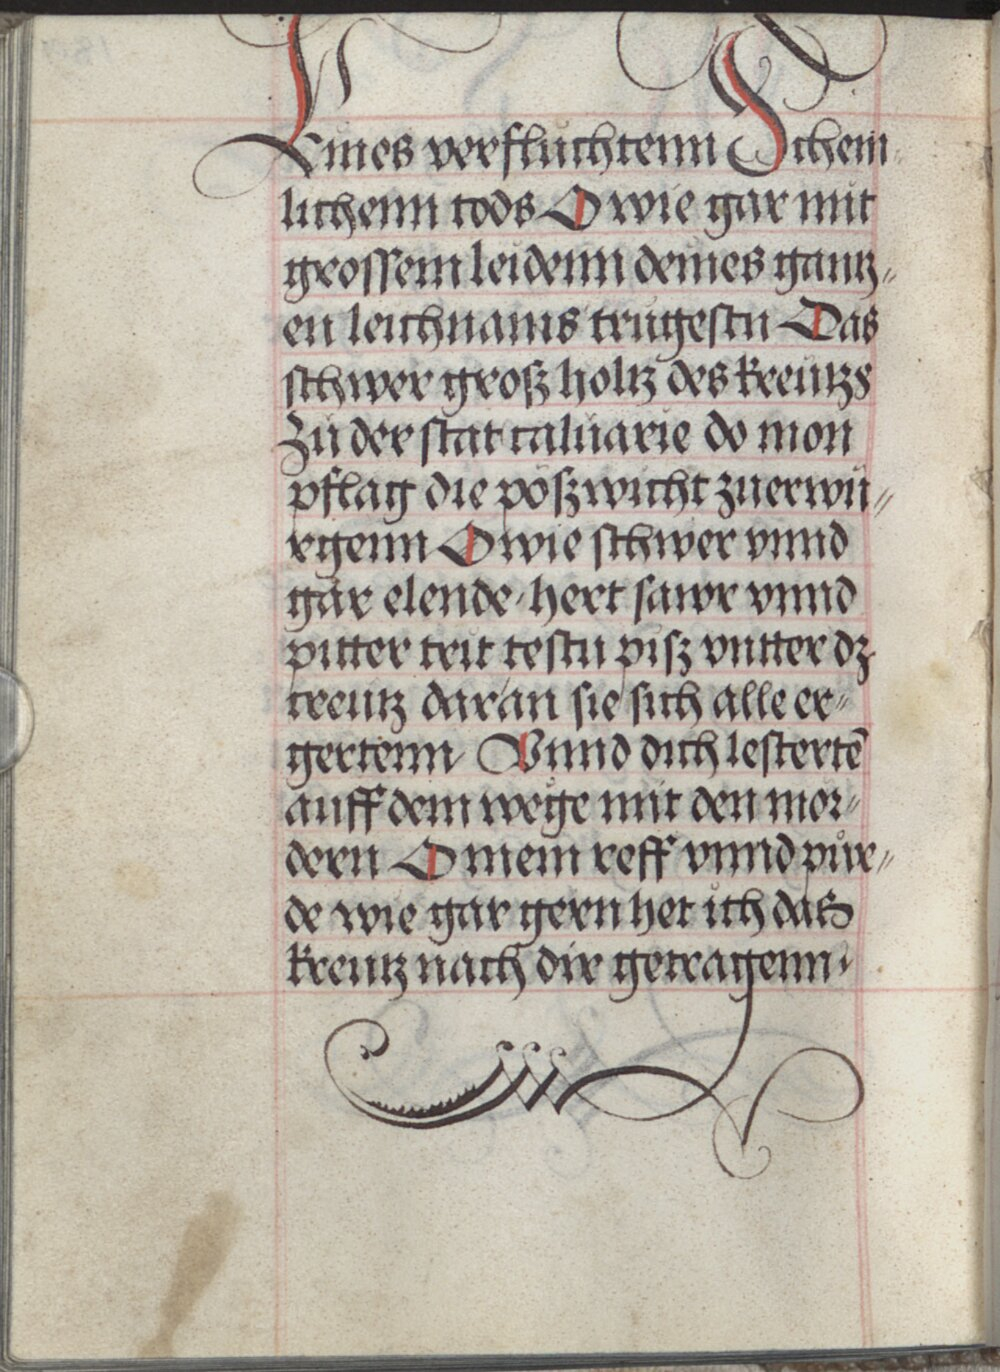 Eines verfluchtenn Schem
lichenn tods O wie gar mit
grossem leidenn deines gantz„
en leichnams trugestu Das
schwer groß holtz des kreutzs
Zu der stat caluarie do mon
pflag die pößwicht zuerwü„
rgenn O wie schwer vnnd
gar elende hert sawr vnnd
pitter trit testu pisz vntter dz
creutz daran sie sich alle er„
gertenn Vnnd dich lestertē
auff dem wege mit den mör„
dern O mein reff vnnd pür„
de wie gar gern het ich das
kreutz nach dir getragenn